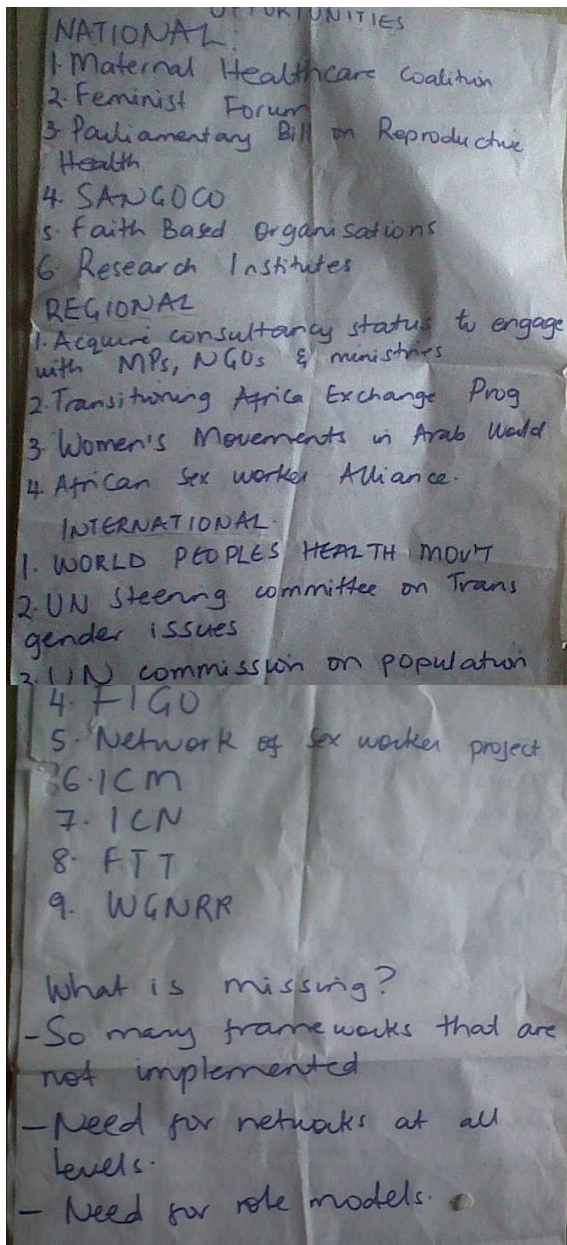 OPPORTUNITIES
NATIONAL:
1. Maternal Healthcare Coalition
2. Feminist Forum
3. Parliamentary Bill on Reproductive
Health
4. SANGOCO
5. Faith Based Organisations
6. Research Institutes
REGIONAL
1. Acquire consultancy status to engage
with MPs, NGOs & ministries
2. Transitioning Africa Exchange Prog
3. Women's Movements in Arab World
4. African Sex worker Alliance.
INTERNATIONAL.
1. WORLD PEOPLES HEALTH MOV'T
2. UN Steering committee on Trans
gender issues
3. UN commission on population
4. FIGO
5. Network of Sex worker project
6. ICM
7. ICN
8. FTT
9. WGNRR
What is missing?
- So many frameworks that are
not implemented
- Need for networks at all
levels.
- Need for role models.